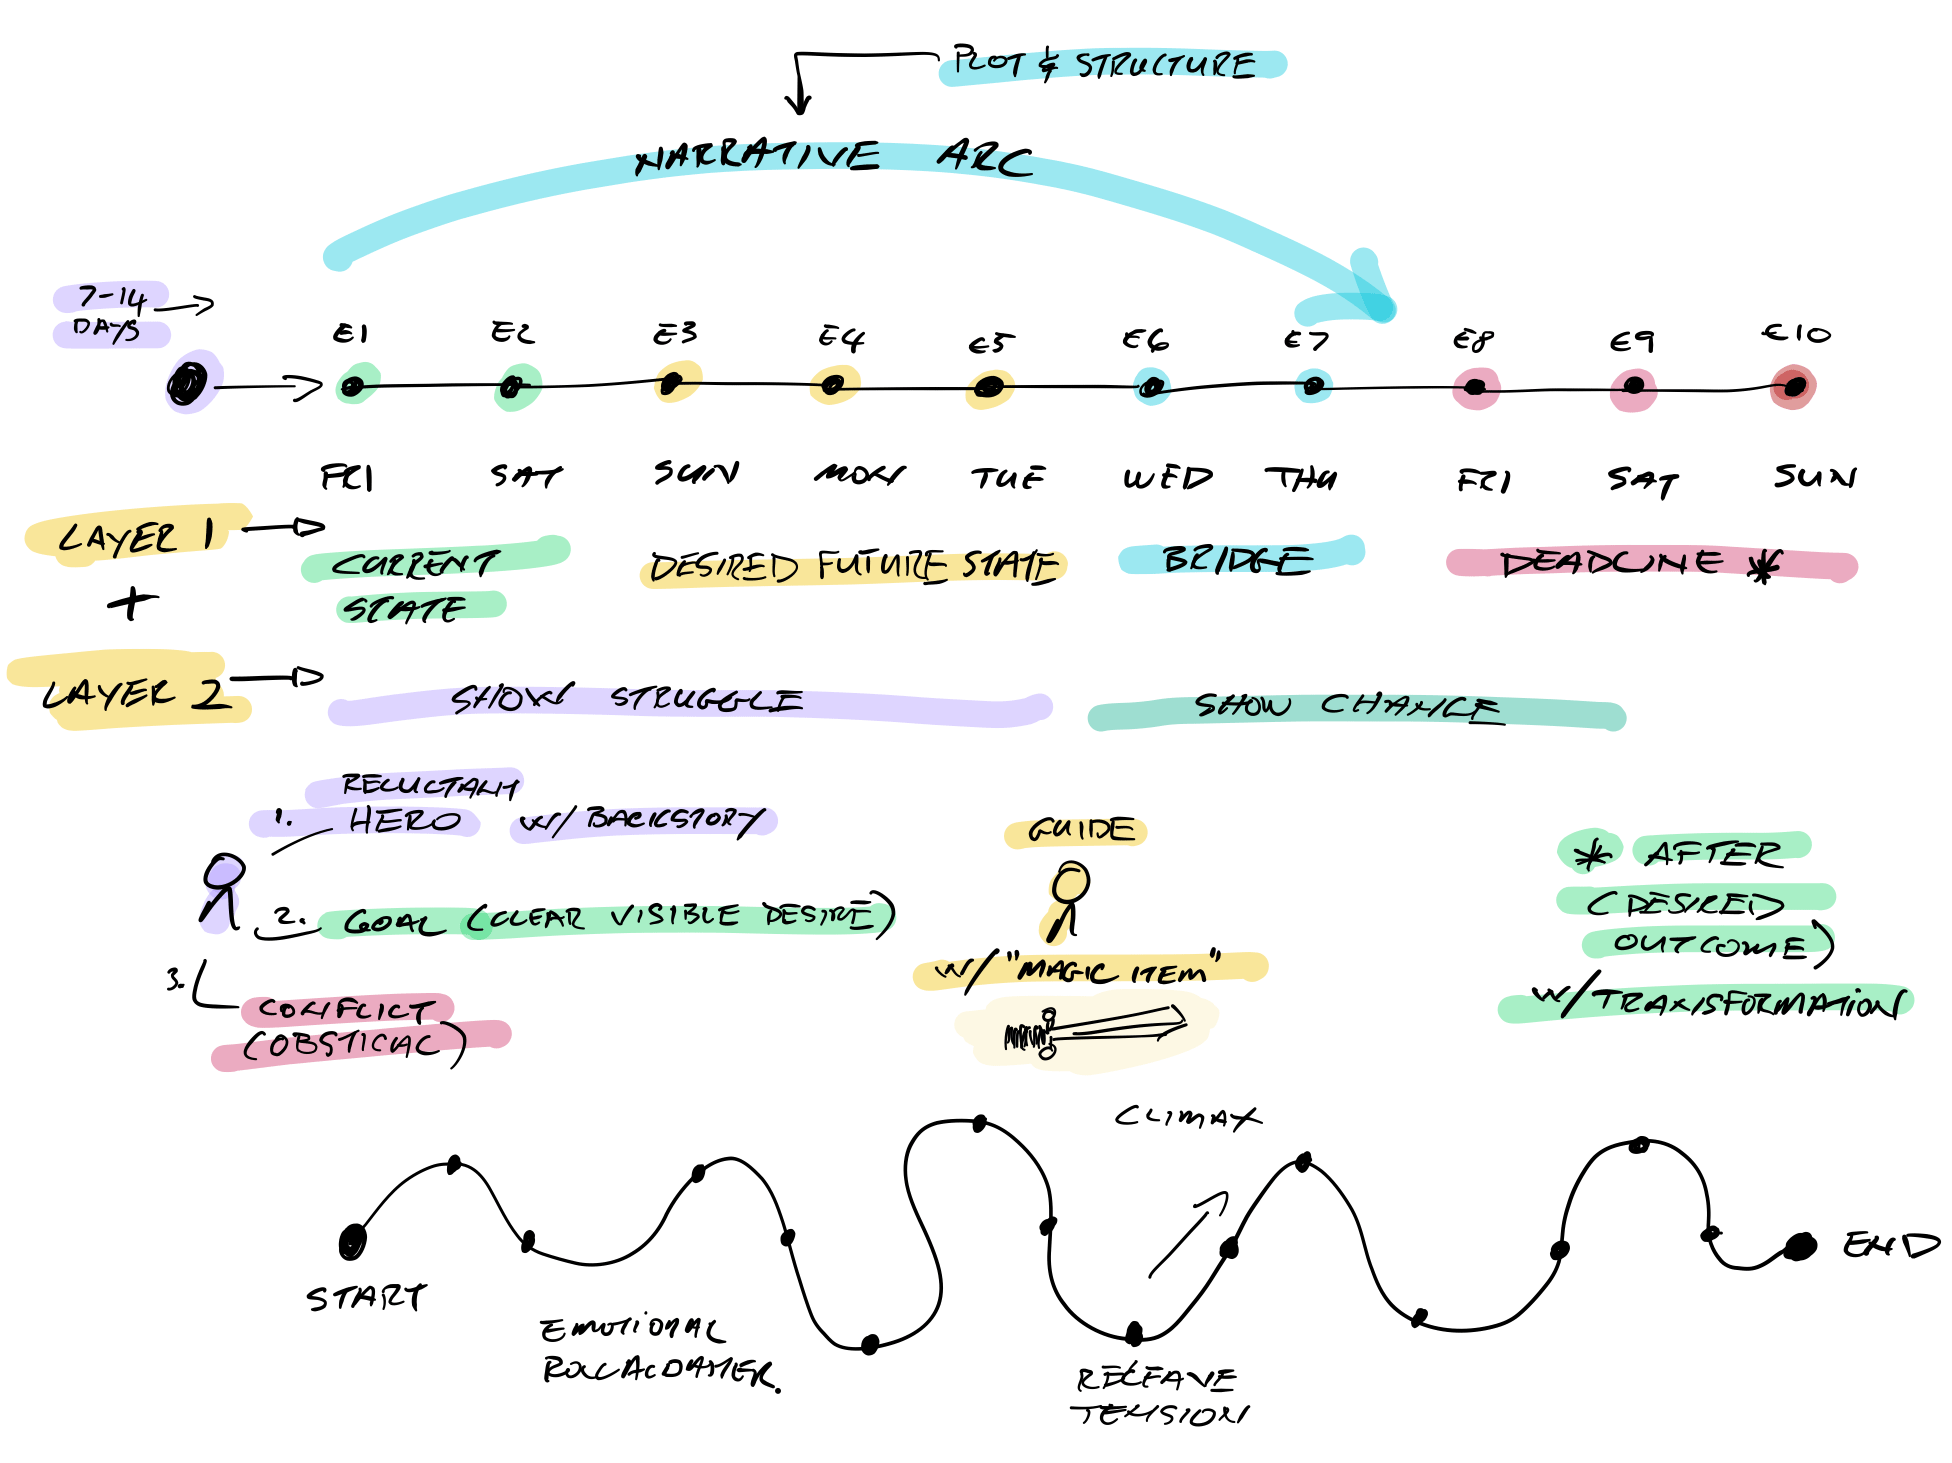 PLOT & STRUCTURE
NARRATIVE ARC
7-14
DAYS
E1 E2 E3 E4 E5 E6 E7 E8 E9 E10
FRI SAT SUN MON TUE WED THU FRI SAT SUN
LAYER 1
CURRENT
STATE
DESIRED FUTURE STATE
BRIDGE
DEADLINE *
+
LAYER 2
SHOW STRUGGLE
SHOW CHANGE
1. RELUCTANT
HERO w/ BACKSTORY
2. GOAL (CLEAR VISIBLE DESIRE)
3. CONFLICT
(OBSTICAL)
GUIDE
w/ "MAGIC ITEM"
* AFTER
(DESIRED
OUTCOME)
w/ TRANSFORMATION
CLIMAX
START
EMOTIONAL
ROLLACOASTER.
RELEAVE
TENSION
END